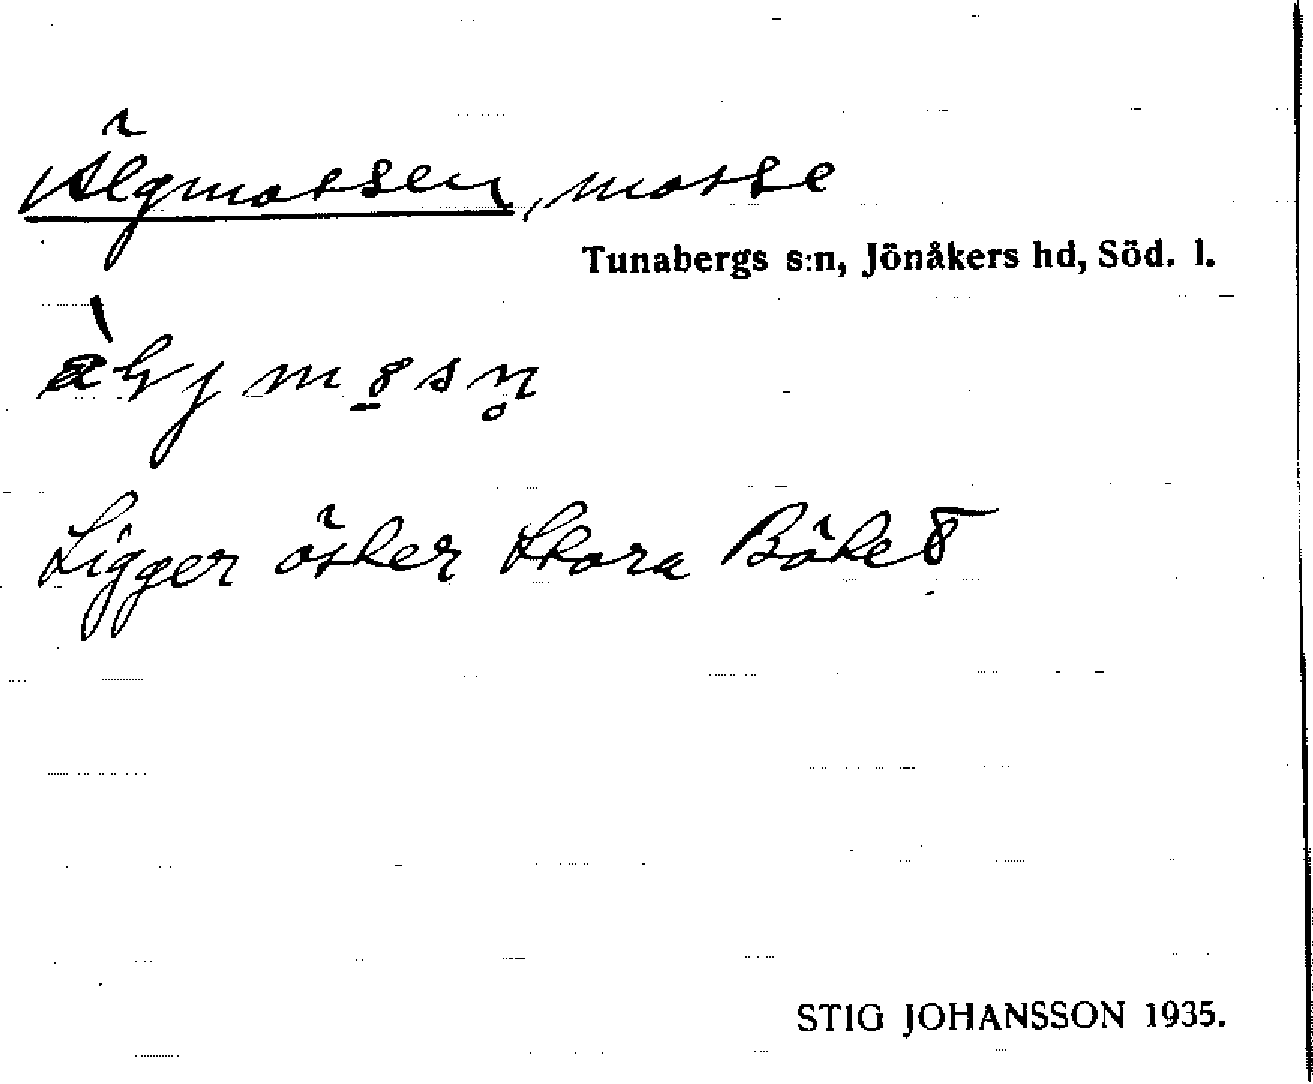 Älgmossen, mosse
Tunabergs s:n, Jönåkers hd, Söd. l.
Ligger öster Stora Böket
STIG JOHANSSON 1935.